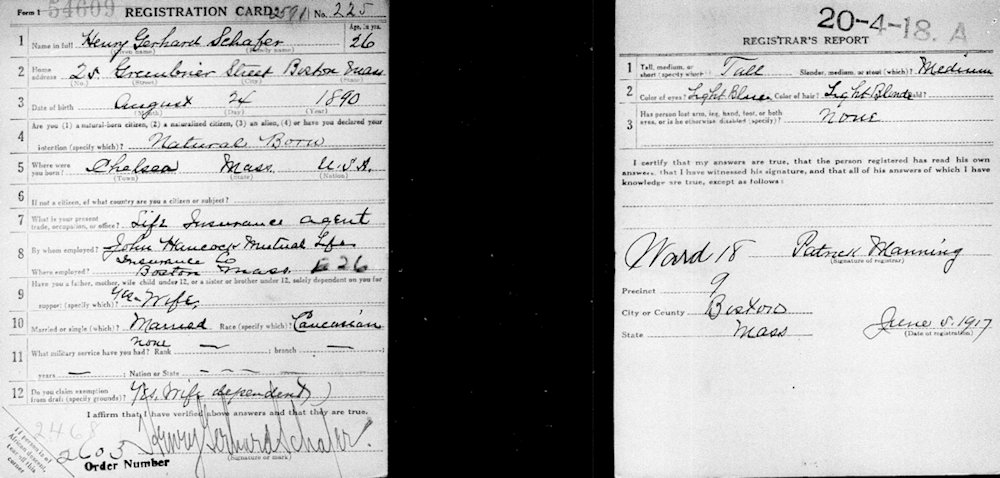 Form 1 54609 REGISTRATION CARD 2591 No. 225
Age, in yrs.
1 Name in full Henry Gerhard Schafer 26
(Given name) (Family name)
2 Home address 25 Greenbrier Street Boston Mass
(No.) (Street) (City) (State)
3 Date of birth August 24 1890
(Month) (Day) (Year)
4 Are you (1) a natural-born citizen, (2) a naturalized citizen, (3) an alien, (4) or have you declared your
intention (specify which)? Natural Born
5 Where were you born? Chelsea Mass. U.S.A.
(Town) (State) (Nation)
6 If not a citizen, of what country are you a citizen or subject?
7 What is your present trade, occupation, or office? Life Insurance agent
8 By whom employed? John Hancock Mutual Life
Insurance Co
Where employed? Boston Mass. E26
9 Have you a father, mother, wife, child under 12, or a sister or brother under 12, solely dependent on you for
support (specify which)? Yes Wife,
10 Married or single (which)? Married Race (specify which)? Caucasian
11 What military service have you had? Rank none — ; branch — ;
years — ; Nation or State — — —
12 Do you claim exemption from draft (specify grounds)? Yes, Wife dependent
I affirm that I have verified above answers and that they are true.
Henry Gerhard Schafer.
(Signature or mark)
2468
2603
Order Number
If person is of
African descent,
tear off this
corner
20-4-18. A
REGISTRAR'S REPORT
1 Tall, medium, or short (specify which)? Tall Slender, medium, or stout (which)? Medium
2 Color of eyes? Light Blue Color of hair? Light Blonde Bald?
3 Has person lost arm, leg, hand, foot, or both
eyes, or is he otherwise disabled (specify)? None
I certify that my answers are true, that the person registered has read his own
answers, that I have witnessed his signature, and that all of his answers of which I have
knowledge are true, except as follows:
Ward 18 Patrick Manning
(Signature of registrar)
Precinct 9
City or County Boston
State Mass June 5. 1917
(Date of registration)